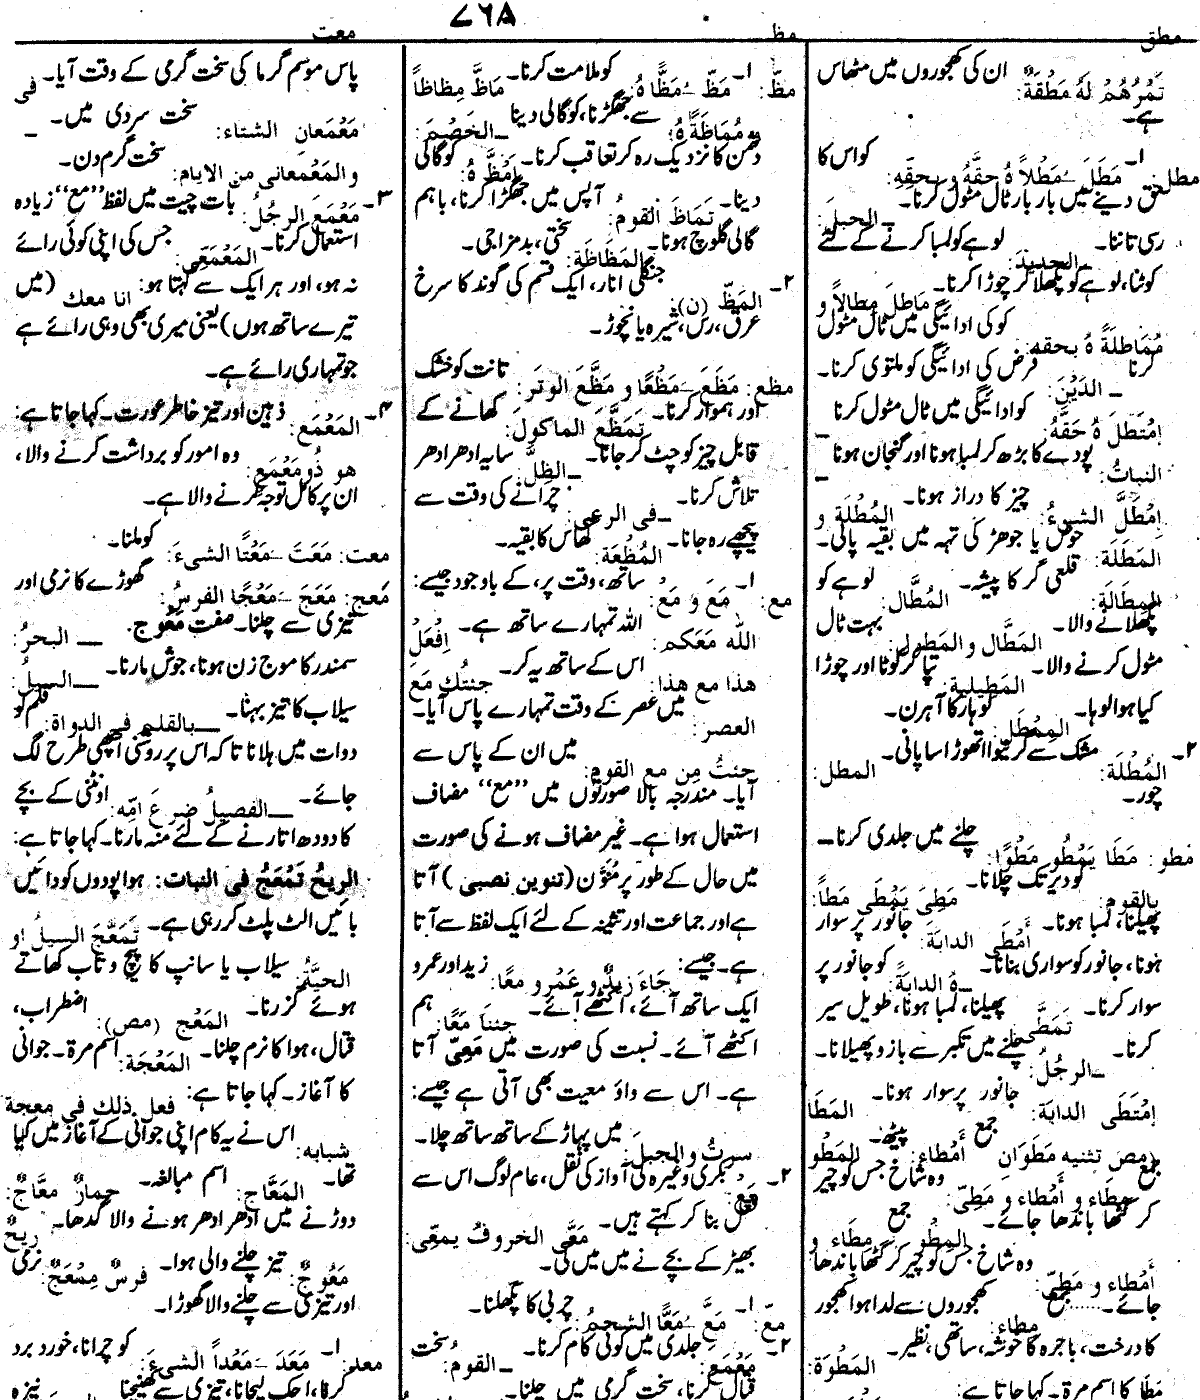 مطق
مظ
۷۶۸
معت
تَمْرُهُمْ لَهُ مَطْقَةٌ: ان کی کھجوروں میں مٹھاس
ہے۔
مطل: ۱۔ مَطَلَ ـَ مَطْلاً هُ حقَّهُ و بحقِّهِ: کو اس کا
حق دینے میں بار بار ٹال مٹول کرنا۔ ـ الحبلَ:
رسی تاننا۔ ـ الحدیدَ: لوہے کو لمبا کرنے کے لئے
کوٹنا، لوہے کو پگھلا کر چوڑا کرنا۔
مَاطلَ مِطالاً و مُمَاطلَةً هُ بحقه: کو کی ادائیگی میں ٹال مٹول
کرنا ـ الدَیْنَ: قرض کی ادائیگی کو ملتوی کرنا۔
اِمْتَطَلَ هُ حَقَّهُ: کو ادائیگی میں ٹال مٹول کرنا ـ
النباتُ: پودے کا بڑھ کر لمبا ہونا اور گنجان ہونا ـ
اِمْطَلَّ الشیءُ: چیز کا دراز ہونا۔ المُطْلَة و
المَطَلَة: حوض یا جوہڑ کی تہہ میں بقیہ پانی۔
المِطَالَة: قلعی گر کا پیشہ۔ المُطَّال: لوہے کو
پگھلانے والا۔ المَطَّال و المَطول: بہت ٹال
مٹول کرنے والا۔ المَطِیلیة: تپا کر کوٹا اور چوڑا
کیا ہوا لوہا۔ المِمْطَل: لوہار کا آہرن۔
۲۔ المُطْلَة: مشک سے گرتا ہوا تھوڑا سا پانی۔ المطل:
چور۔
مطو: مَطَا یَمْطُو مَطْوًا: چلنے میں جلدی کرنا۔ ـ
بالقوم: کو دیر تک چلانا۔ مَطِیَ یَمْطَی مَطاً:
پھیلنا، لمبا ہونا۔ أَمْطَی الدابةَ: جانور پر سوار
ہونا، جانور کو سواری بنانا۔ ـ هُ الدابةَ: کو جانور پر
سوار کرنا۔ تَمَطَّی: پھیلنا، لمبا ہونا، طویل سیر
کرنا۔ ـ الرجُلُ: چلنے میں تکبر سے بازو پھیلانا۔
اِمْتَطَی الدابة: جانور پر سوار ہونا۔ المَطَا
(مص) تثنیه مَطَوَانِ جمع أَمْطاء: پیٹھ۔ المَطْو
جمع مِطَاء و أَمْطاء و مَطِیّ: وہ شاخ جس کو چیر
کر گٹھا باندھا جائے۔ المِطْو جمع مِطاء و
أَمْطاء و مَطِیّ: وہ شاخ جس کو چیر کر گٹھا باندھا
جائے۔ جمع مِطاء: کھجوروں سے لدا ہوا کھجور
کا درخت، باجرہ کا خوشہ، ساتھی، نظیر۔ المَطْوَة:
مطا کا اسم مرۃ۔ کہا جاتا ہے:
مظّ: ۱۔ مَظَّ ـُ مَظًّا هُ: کو ملامت کرنا۔ مَاظَّ مِظاظاً
و مُمَاظَّةً هُ: سے جھگڑنا، کو گالی دینا ـ الخَصْمَ:
دشمن کا نزدیک رہ کر تعاقب کرنا۔ أَمَظَّ هُ: کو گالی
دینا۔ تَمَاظَّ القومُ: آپس میں جھگڑا کرنا، باہم
گالی گلوچ ہونا۔ المَظَاظَة: سختی، بدمزاجی۔
۲۔ المَظّ (ن): جنگلی انار، ایک قسم کی گوند کا سرخ
عرق، رس، شیرہ یا نچوڑ۔
مظع: مَظَعَ ـَ مَظْعًا و مَظَّعَ الوتَر: تانت کو خشک
اور ہموار کرنا۔ تَمَظَّعَ الماکولَ: کھانے کے
قابل چیز کو چٹ کر جانا۔ ـ الظِلَّ: سایہ ادھر ادھر
تلاش کرنا۔ ـ فی الرعی: چرانے کی وقت سے
پیچھے رہ جانا۔ المُظْعَة: گھاس کا بقیہ۔
مع: ۱۔ مَعَ و مَعْ: ساتھ، وقت پر، کے باوجود جیسے:
الله مَعَکم: اللہ تمہارے ساتھ ہے۔ اِفْعَلْ
هذا مع هذا: اس کے ساتھ یہ کر۔ جئتُك مَعَ
العصر: میں عصر کے وقت تمہارے پاس آیا۔
جئتُ مِن مع القوم: میں ان کے پاس سے
آیا۔ مندرجہ بالا صورتوں میں ‘‘مع’’ مضاف
استعمال ہوا ہے۔ غیر مضاف ہونے کی صورت
میں حال کے طور پر مُنَوَّن (تنوین نصبی) آتا
ہے اور جماعت اور تثنیہ کے لئے ایک لفظ سے آتا
ہے۔ جیسے: جَاءَ زیدٌ و عَمْرو معًا: زید اور عمرو
ایک ساتھ آئے، اکٹھے آئے۔ جئنَا مَعًا: ہم
اکٹھے آئے۔ نسبت کی صورت میں مَعِیّ آتا
ہے۔ اس سے واؤ معیت بھی آتی ہے جیسے:
سرتُ و الجبلَ: میں پہاڑ کے ساتھ ساتھ چلا۔
۲۔ مَعْ: بکری وغیرہ کی آواز کی نقل، عام لوگ اس سے
فعل بنا کر کہتے ہیں۔ مَعَّی الخروفُ یمعِّی:
بھیڑ کے بچے نے میں میں کی۔
معّ: ۱۔ مَعَّ ـُ مَعًّا الشحمُ: چربی کا پگھلنا۔
۲۔ مَعْمَعَ: جلدی میں کوئی کام کرنا۔ ـ القوم: سخت
قتال کرنا، سخت گرمی میں چلنا۔
پاس موسم گرما کی سخت گرمی کے وقت آیا۔ فی
مَعْمَعانِ الشتاء: سخت سردی میں۔ ـ
و المَعْمعانی من الایام: سخت گرم دن۔
۳۔ مَعْمَعَ الرجُلُ: بات چیت میں لفظ ‘‘مع’’ زیادہ
استعمال کرنا۔ المَعْمَعِی: جس کی اپنی کوئی رائے
نہ ہو، اور ہر ایک سے کہتا ہو: انا معك (میں
تیرے ساتھ ہوں) یعنی میری بھی وہی رائے ہے
جو تمہاری رائے ہے۔
۴۔ المَعْمَع: ذہین اور تیز خاطر عورت۔ کہا جاتا ہے:
هو ذُو مَعْمَعٍ: وہ امور کو برداشت کرنے والا،
ان پر کامل توجہ کرنے والا ہے۔
معت: مَعَتَ ـَ مَعْتًا الشیءَ: کو ملنا۔
مَعج: مَعَجَ ـَ مَعْجًا الفرسُ: گھوڑے کا نرمی اور
تیزی سے چلنا۔ صفت مَعُوج۔ ـ البحرُ:
سمندر کا موج زن ہونا، جوش مارنا۔ ـ السیلُ:
سیلاب کا تیز بہنا۔ ـ بالقلمِ فی الدواة: قلم کو
دوات میں ہلانا تاکہ اس پر روشنی اچھی طرح لگ
جائے۔ ـ الفصیلُ ضرعَ امِّه: اونٹنی کے بچے
کا دودھ اتارنے کے لئے منہ مارنا۔ کہا جاتا ہے:
الریحُ تَمْعَجُ فی النبات: ہوا پودوں کو دائیں
بائیں الٹ پلٹ کر رہی ہے۔ تَمَعَّجَ السیلُ او
الحیَّةُ: سیلاب یا سانپ کا پیچ و تاب کھاتے
ہوئے گزرنا۔ المَعْج (مص): اضطراب،
قتال، ہوا کا نرم چلنا۔ المَعْجَة: اسم مرۃ۔ جوانی
کا آغاز۔ کہا جاتا ہے: فعل ذلك فی معجة
شبابه: اس نے یہ کام اپنی جوانی کے آغاز میں کیا
تھا۔ المَعَّاج: اسم مبالغہ۔ حمارٌ معَّاجٌ:
دوڑنے میں ادھر ادھر ہونے والا گدھا۔ ریحٌ
مَعُوجٌ: تیز چلنے والی ہوا۔ فرسٌ مِمْعَجٌ: نرمی
اور تیزی سے چلنے والا گھوڑا۔
معد: ۱۔ مَعَدَ ـَ مَعْداً الشیءَ: کو چرانا، خورد برد
کرنا، اچک لیجانا، تیزی سے کھینچنا نیزہ